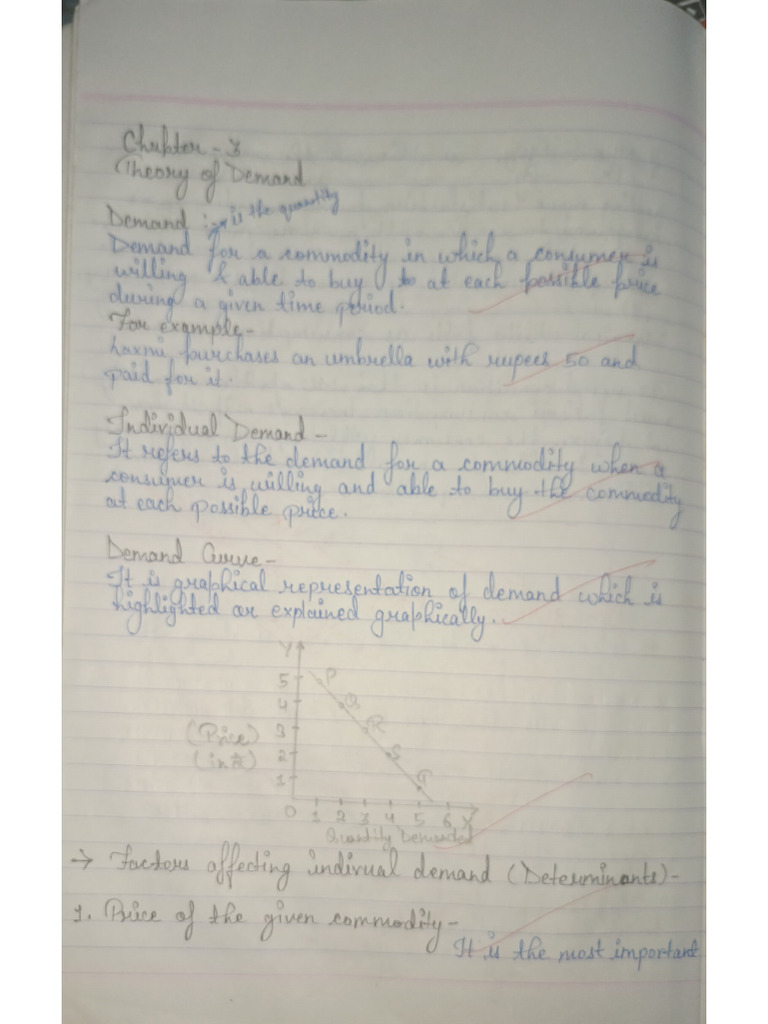 Chapter - 3
Theory of Demand
Demand :→ is the quantity
Demand for a commodity in which a consumer is
willing & able to buy to at each possible price
during a given time period.
For example-
Laxmi purchases an umbrella with rupees 50 and
paid for it.
Individual Demand -
It refers to the demand for a commodity when a
consumer is willing and able to buy the commodity
at each possible price.
Demand Curve -
It is graphical representation of demand which is
highlighted or explained graphically.
Y
5 P
4 Q
(Price) 3 R
(in ₹) 2 S
1 T
0 1 2 3 4 5 6 X
Quantity Demanded
→ Factors affecting indivual demand (Determinants)-
1. Price of the given commodity-
It is the most important